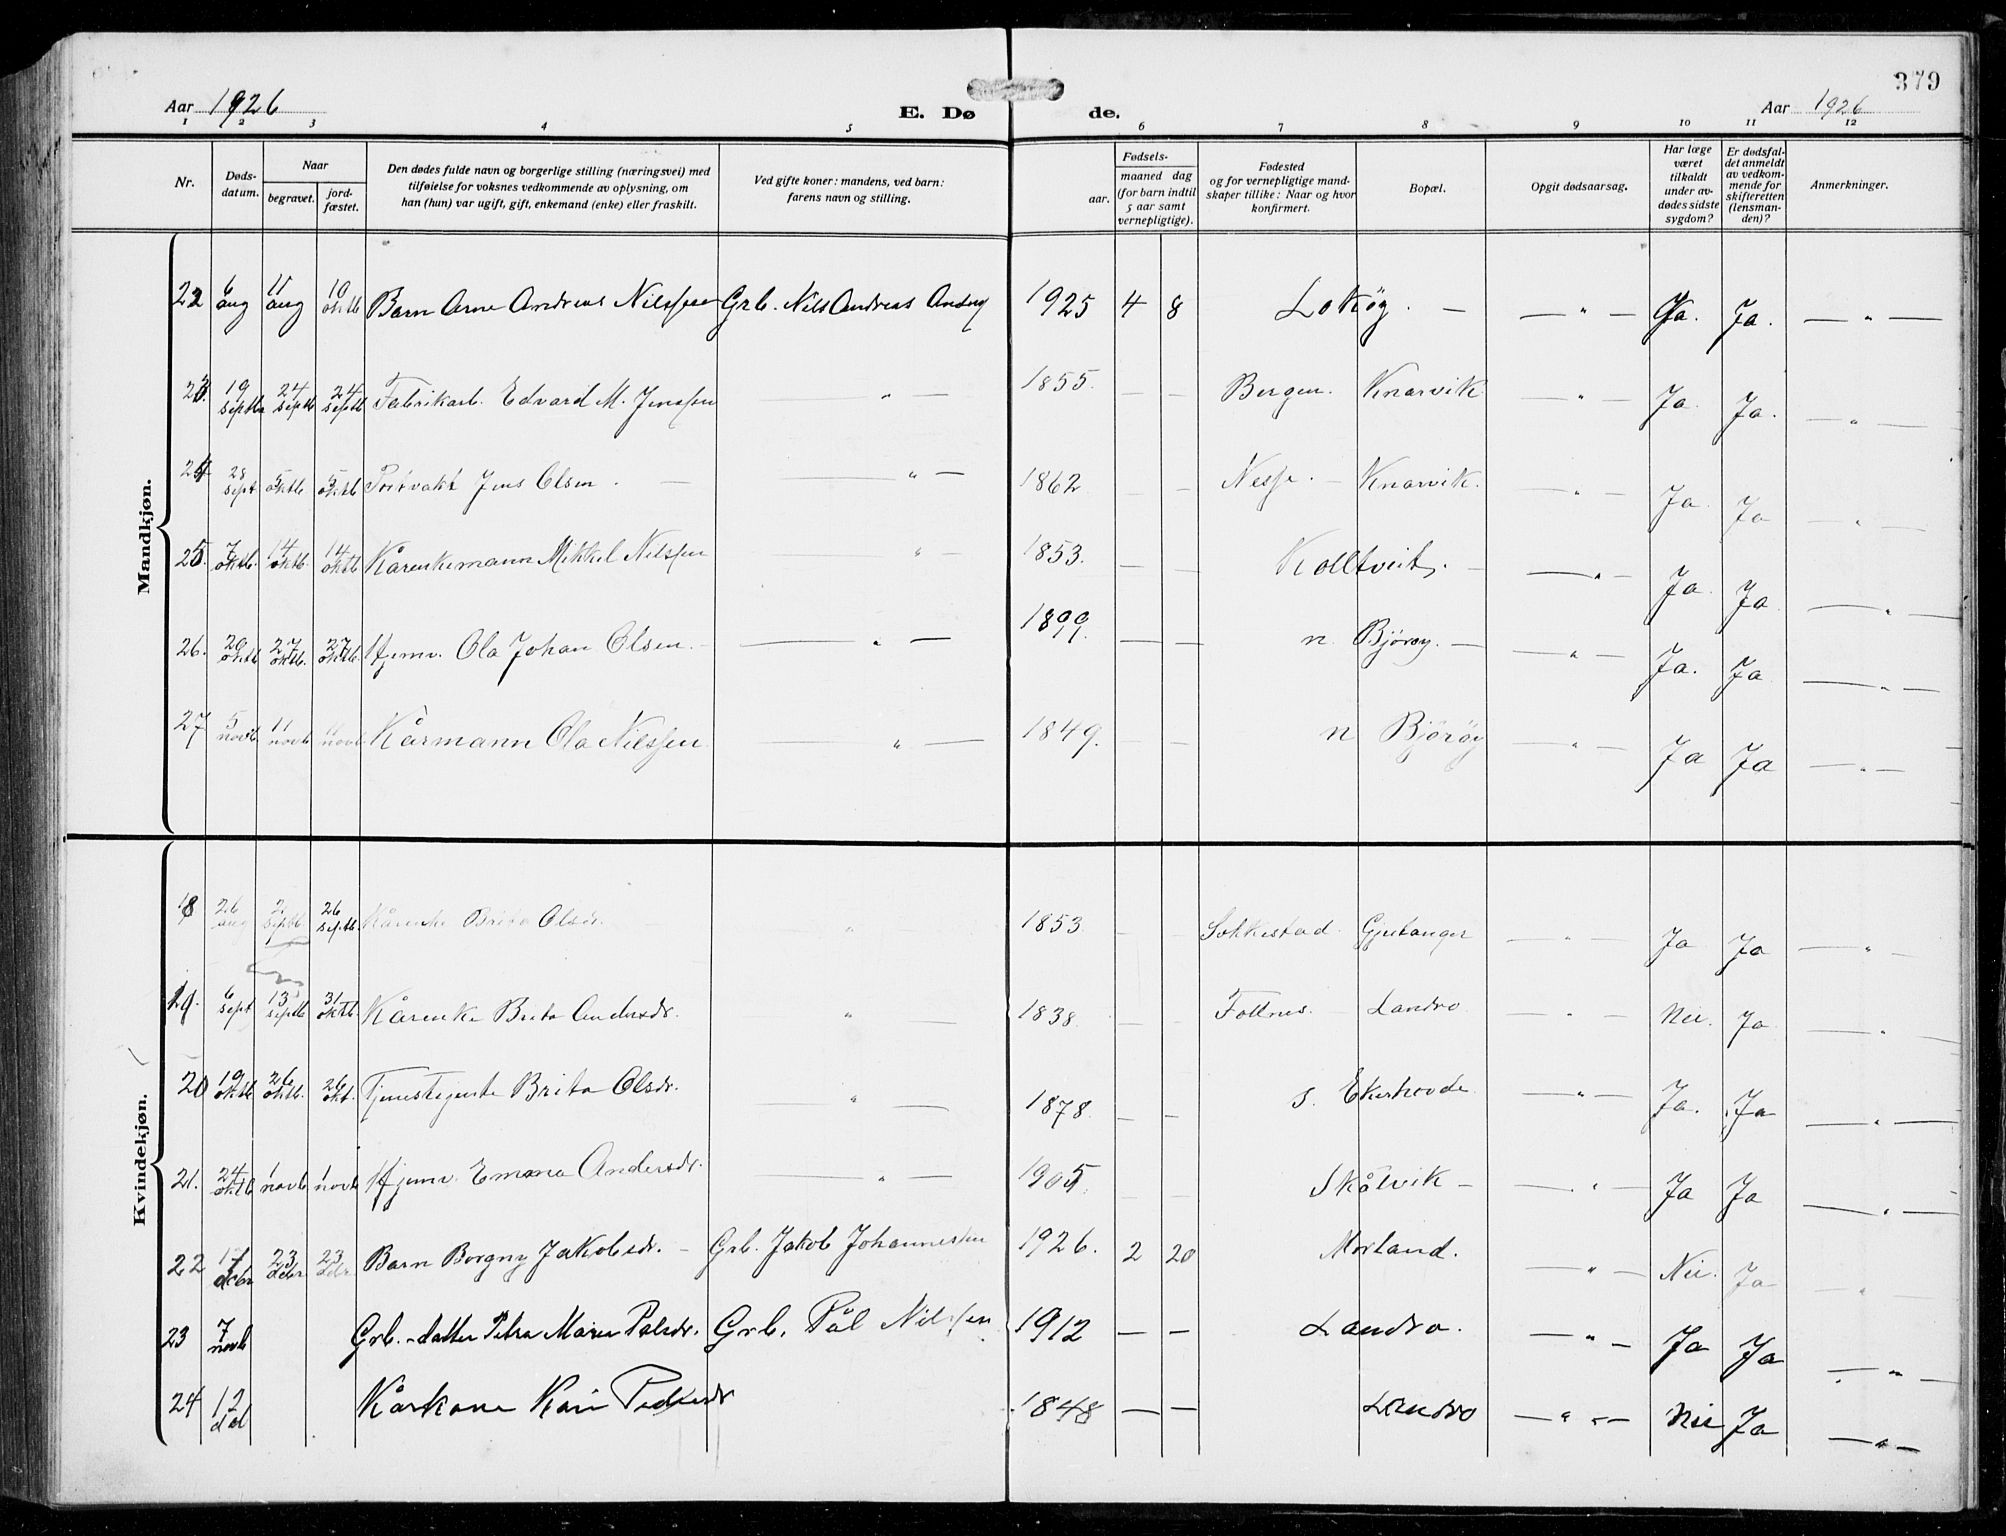 379
Aar 1926 E. Dø de. Aar 1926
1 2 3 4 5 6 7 8 9 10 11 12
Nr. Døds-datum. Naar begravet. jord-fæstet. Den dødes fulde navn og borgerlige stilling (næringsvei) med tilføielse for voksnes vedkommende av oplysning, om han (hun) var ugift, gift, enkemand (enke) eller fraskilt. Ved gifte koner: mandens, ved barn: farens navn og stilling. Fødsels- aar. maaned dag (for barn indtil 5 aar samt vernepligtige). Fødested og for vernepligtige mand-skaper tillike: Naar og hvor konfirmert. Bopæl. Opgit dødsaarsag. Har læge været tilkaldt under av-dødes sidste sygdom? Er dødsfal-det anmeldt av vedkom-mende for skifteretten (lensman-den)? Anmerkninger.
Mandkjøn.
22 6 aug 11 aug 10 oktb Barn Arne Andreas Nilssen Grb. Nils Andreas 1925 4 8 Lokøy. — — " — Ja. Ja. — " —
23. 19 septb 24 septb 24 septb Fabrikarb. Edvard M. Jenssen — " — 1855. — — Bergen. Knarvik — " — Ja. Ja. — " —
24 28 sept 5 oktb 5 oktb Portvakt Jens Olsen. — — " — 1862 — — Nesse. — Knarvik. — " — Ja. Ja — " —
25. 7 oktb. 14 oktb 14 oktb Kårenkemann Mikkel Nilssen — " — 1853. — — Kolltveit. — — " — Ja. Ja — " —
26. 20 oktb 27 oktb. 27 oktb. Hjemv. Ola Johan Olsen. — " — 1899. — — n. Bjørøy. — — " — Ja. Ja — " —
27 5 novb 11 novb 11 novb Kårmann Ola Nilssen — " — 1849. — — n Bjørøy — " — Ja Ja — " —
Kvindekjøn.
18 26 aug 2 septb 26 septb. Kårenke Brita Olsdr. — " — 1853 — — Sekkestad Gjetanger — " — Ja Ja — " —
19. 6 sept 13 septb 31 oktb Kårenke Brita Andersdr. — " — 1838. — — Follnes. Landro — " — Nei. Ja — " —
20 19 oktb 26 oktb. 26 okt. Tjenestejente Brita Olsdr. — " — 1878. — — s. Ekerhovde — " — Ja. Ja — " —
21. 24 oktb 1 novb 1 novb Hjemv. Emma Andersdr. — " — 1905. — — Skålvik — — " — Ja Ja — " —
22 17 dcbr 23 dcbr 23 dcbr Barn Borgny Jakobsdr. — Grb. Jakob Johannessen 1926. 2 20 Morland. — " — Nei. Ja — " —
23 7 novb Grb.-datter Petra Marie Palsdr. Grb. Pål Nilssen 1912 — — Landro. — " — Ja Ja — " —
24 12 Kårkone Kari Pedersdr 1848 — — Landro — " — Nei Ja — " —